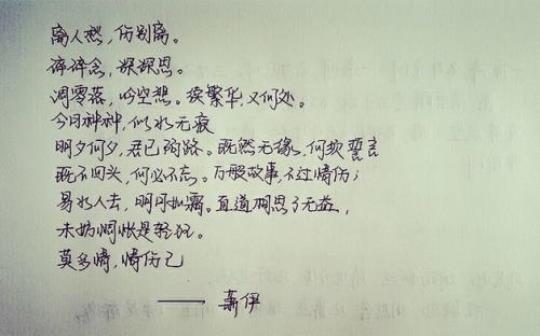 离人愁，伤别离。
碎碎念，深深思。
凋零落，吟空想。俟繁华又何处。
今日种种，似水无痕
明夕何夕，君已陌路。既然无缘，何须誓言
既不回头，何必不忘。万般故事，不过情伤；
易水人去，明月如霜。直道相思了无益，
未妨惆怅是轻狂。
莫多情，情伤己